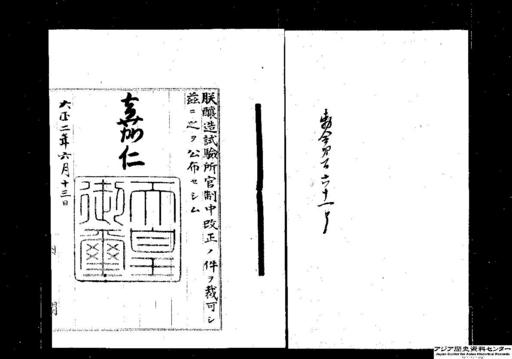 勅令第百六十一号
朕釀造試驗所官制中改正ノ件ヲ裁可シ
茲ニ之ヲ公布セシム
嘉仁
天皇
御璽
大正二年六月十三日
アジア歴史資料センター
Japan Center for Asian Historical Records